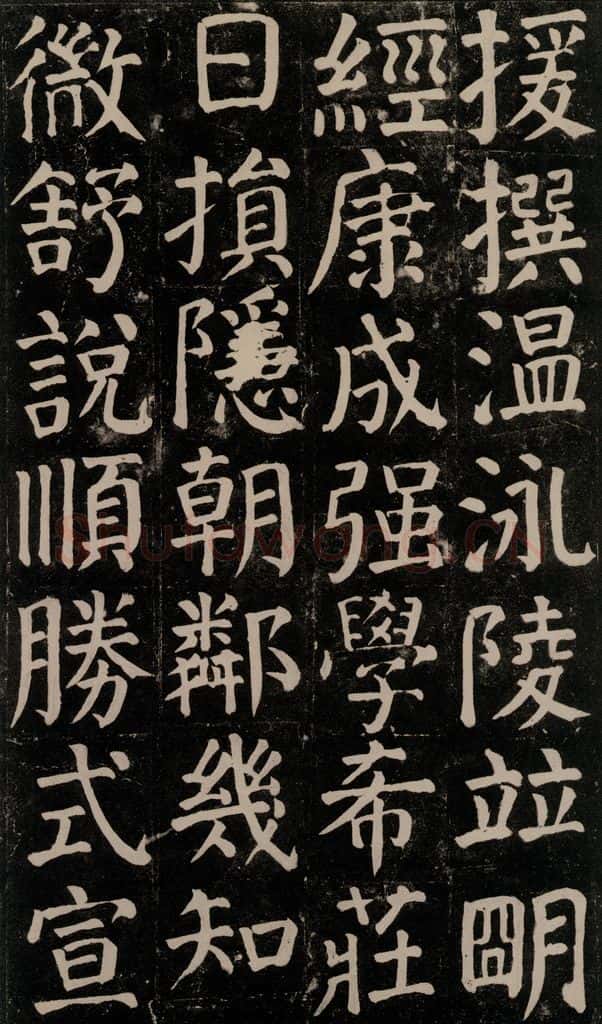 援撰温泳陵竝朙
經康成强學希莊
日損隱朝鄰幾知
微舒說順勝式宣
Shufawang.CN